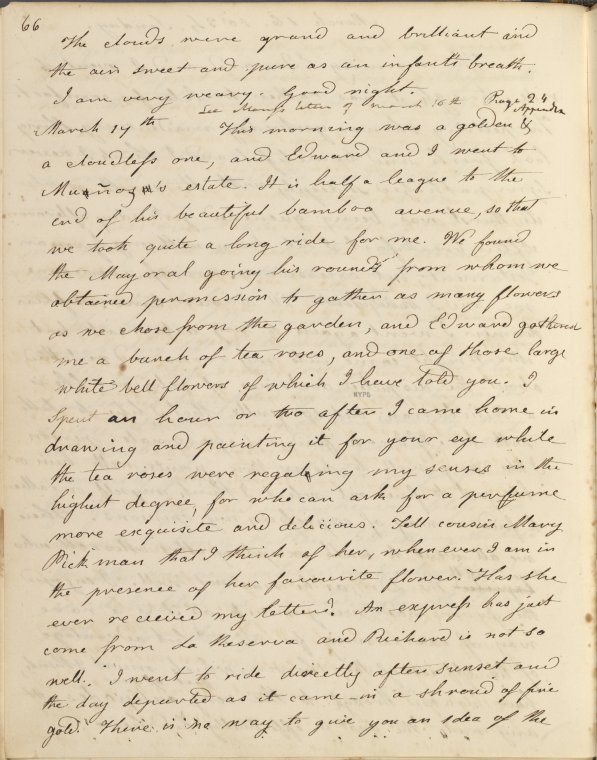 66
The clouds were grand and brilliant and
the air sweet and pure as an infant's breath.
I am very weary. Good night.
See letter of March 16th Page 24
Appendix
March 17th This morning was a golden &
a cloudless one, and Edward and I went to
Muñoz's estate. It is half a league to the
end of his beautiful bamboo avenue, so that
we took quite a long ride for me. We found
the Mayoral going his rounds from whom we
obtained permission to gather as many flowers
as we chose from the garden, and Edward gathered
me a bunch of tea roses, and one of those large
white bell flowers of which I have told you. I
NYPL
spent an hour or two after I came home in
drawing and painting it for your eye while
the tea roses were regaling my senses in the
highest degree, for who can ask for a perfume
more exquisite and delicious. Tell cousin Mary
Pickman that I think of her, when ever I am in
the presence of her favourite flower. Has she
ever received my letter? An express has just
come from La Reserva and Richard is not so
well. I went to ride directly after sunset and
the day departed as it came in a shroud of fine
gold. There is no way to give you an idea of the